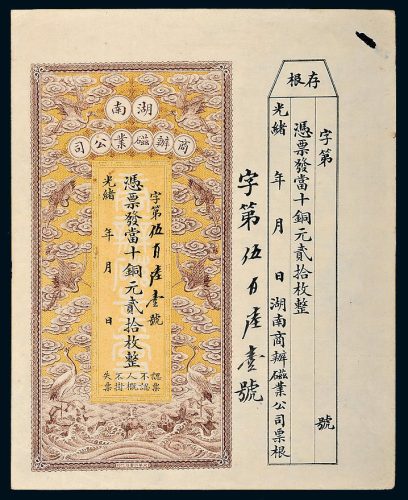 存根
字第 號
憑票發當十銅元貳拾枚整
光緒 年 月 日 湖南商辦磁業公司票根
字第伍百陸壹號
湖南
商辦磁業公司
字第伍百陸壹號
憑票發當十銅元貳拾枚整
光緒 年 月 日
認票
不認
人概
不掛
失票